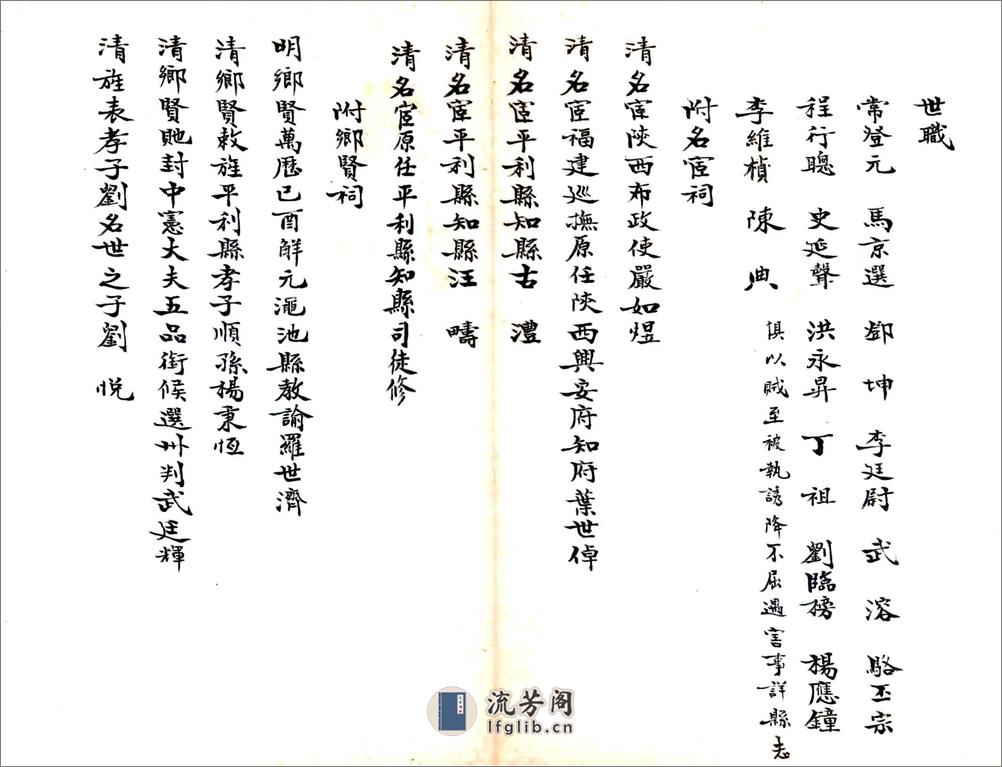 世職
常登元 馬京選 鄧坤 李廷尉 武溶 駱丕宗
程行聰 史延聲 洪永昇 丁祖 劉臨榜 楊應鐘
李維楨 陳典 俱以賊至被執誘降不屈遇害事詳縣志
附名宦祠
清名宦陝西布政使嚴如煜
清名宦福建巡撫原任陝西興安府知府葉世倬
清名宦平利縣知縣古澧
清名宦平利縣知縣汪疇
清名宦原任平利縣知縣司徒修
附鄉賢祠
明鄉賢萬歷己酉解元澠池縣教諭羅世濟
清鄉賢敕旌平利縣孝子順孫楊秉恆
清鄉賢貤封中憲大夫五品銜候選州判武廷輝
清旌表孝子劉名世之子劉悅
流芳阁
lfglib.cn